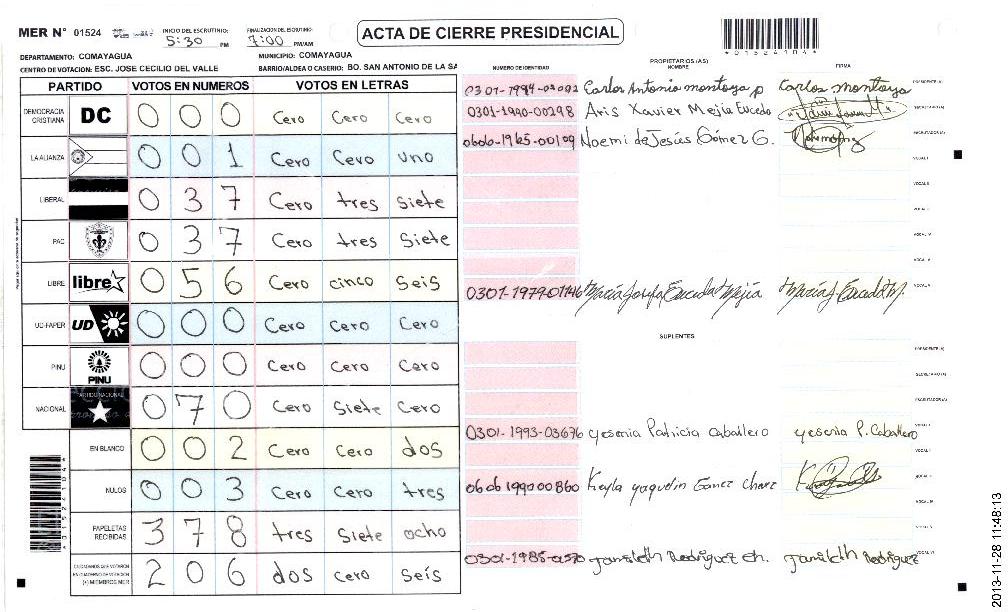 MER N° 01524 INICIO DEL ESCRUTINIO: 5:30 PM FINALIZACION DEL ESCRUTINIO: 7:00 PM/AM
ACTA DE CIERRE PRESIDENCIAL
DEPARTAMENTO: COMAYAGUA MUNICIPIO: COMAYAGUA
CENTRO DE VOTACION: ESC. JOSE CECILIO DEL VALLE BARRIO/ALDEA O CASERIO: BO. SAN ANTONIO DE LA SA
PARTIDO VOTOS EN NUMEROS VOTOS EN LETRAS
DEMOCRACIA CRISTIANA DC 0 0 0 Cero Cero Cero
LA ALIANZA 0 0 1 Cero Cero uno
LIBERAL 0 3 7 Cero tres Siete
PAC 0 3 7 Cero tres Siete
LIBRE libre 0 5 6 Cero cinco Seis
UD-FAPER UD 0 0 0 Cero Cero Cero
PINU PINU 0 0 0 Cero Cero Cero
NACIONAL PARTIDO NACIONAL 0 7 0 Cero Siete Cero
EN BLANCO 0 0 2 Cero Cero dos
NULOS 0 0 3 Cero Cero tres
PAPELETAS RECIBIDAS 3 7 8 tres Siete ocho
CIUDADANOS QUE VOTARON EN CUADERNO DE VOTACION (+) MIEMBROS MER 2 0 6 dos cero seis
*01524104*
PROPIETARIOS (AS)
NUMERO DE IDENTIDAD NOMBRE FIRMA
Carlos Antonio montoya p Carlos montoya PRESIDENTE (A)
0301-1990-00298 Aris Xavier Mejia Euceda SECRETARIO (A)
0606-1965-00109 Noemi de Jesús Gómez G. ESCRUTADOR (A)
VOCAL I
VOCAL II
VOCAL III
VOCAL IV
VOCAL V
0301-1979-01146 María Josefa Euceda Mejía María J. Euceda M.
SUPLENTES
PRESIDENTE (A)
SECRETARIO (A)
ESCRUTADOR (A)
0301-1993-03676 yesenia Patricia Caballero yesenia P. Caballero
VOCAL II
0606 1990 00860 Keyla
VOCAL IV
VOCAL V
Rodriguez ch. Rodriguez VOCAL VI
2013-11-28 11:48:13